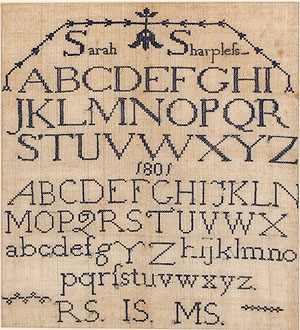 Sarah Sharpleſs
ABCDEFGHI
JKLMNOPQR
STUVWXYZ
1801
ABCDEFGHIJKLN
MOPQRSTUVWX
abcdefgYZhijklmno
pqrſstuvwxyz.
RS. IS. MS.